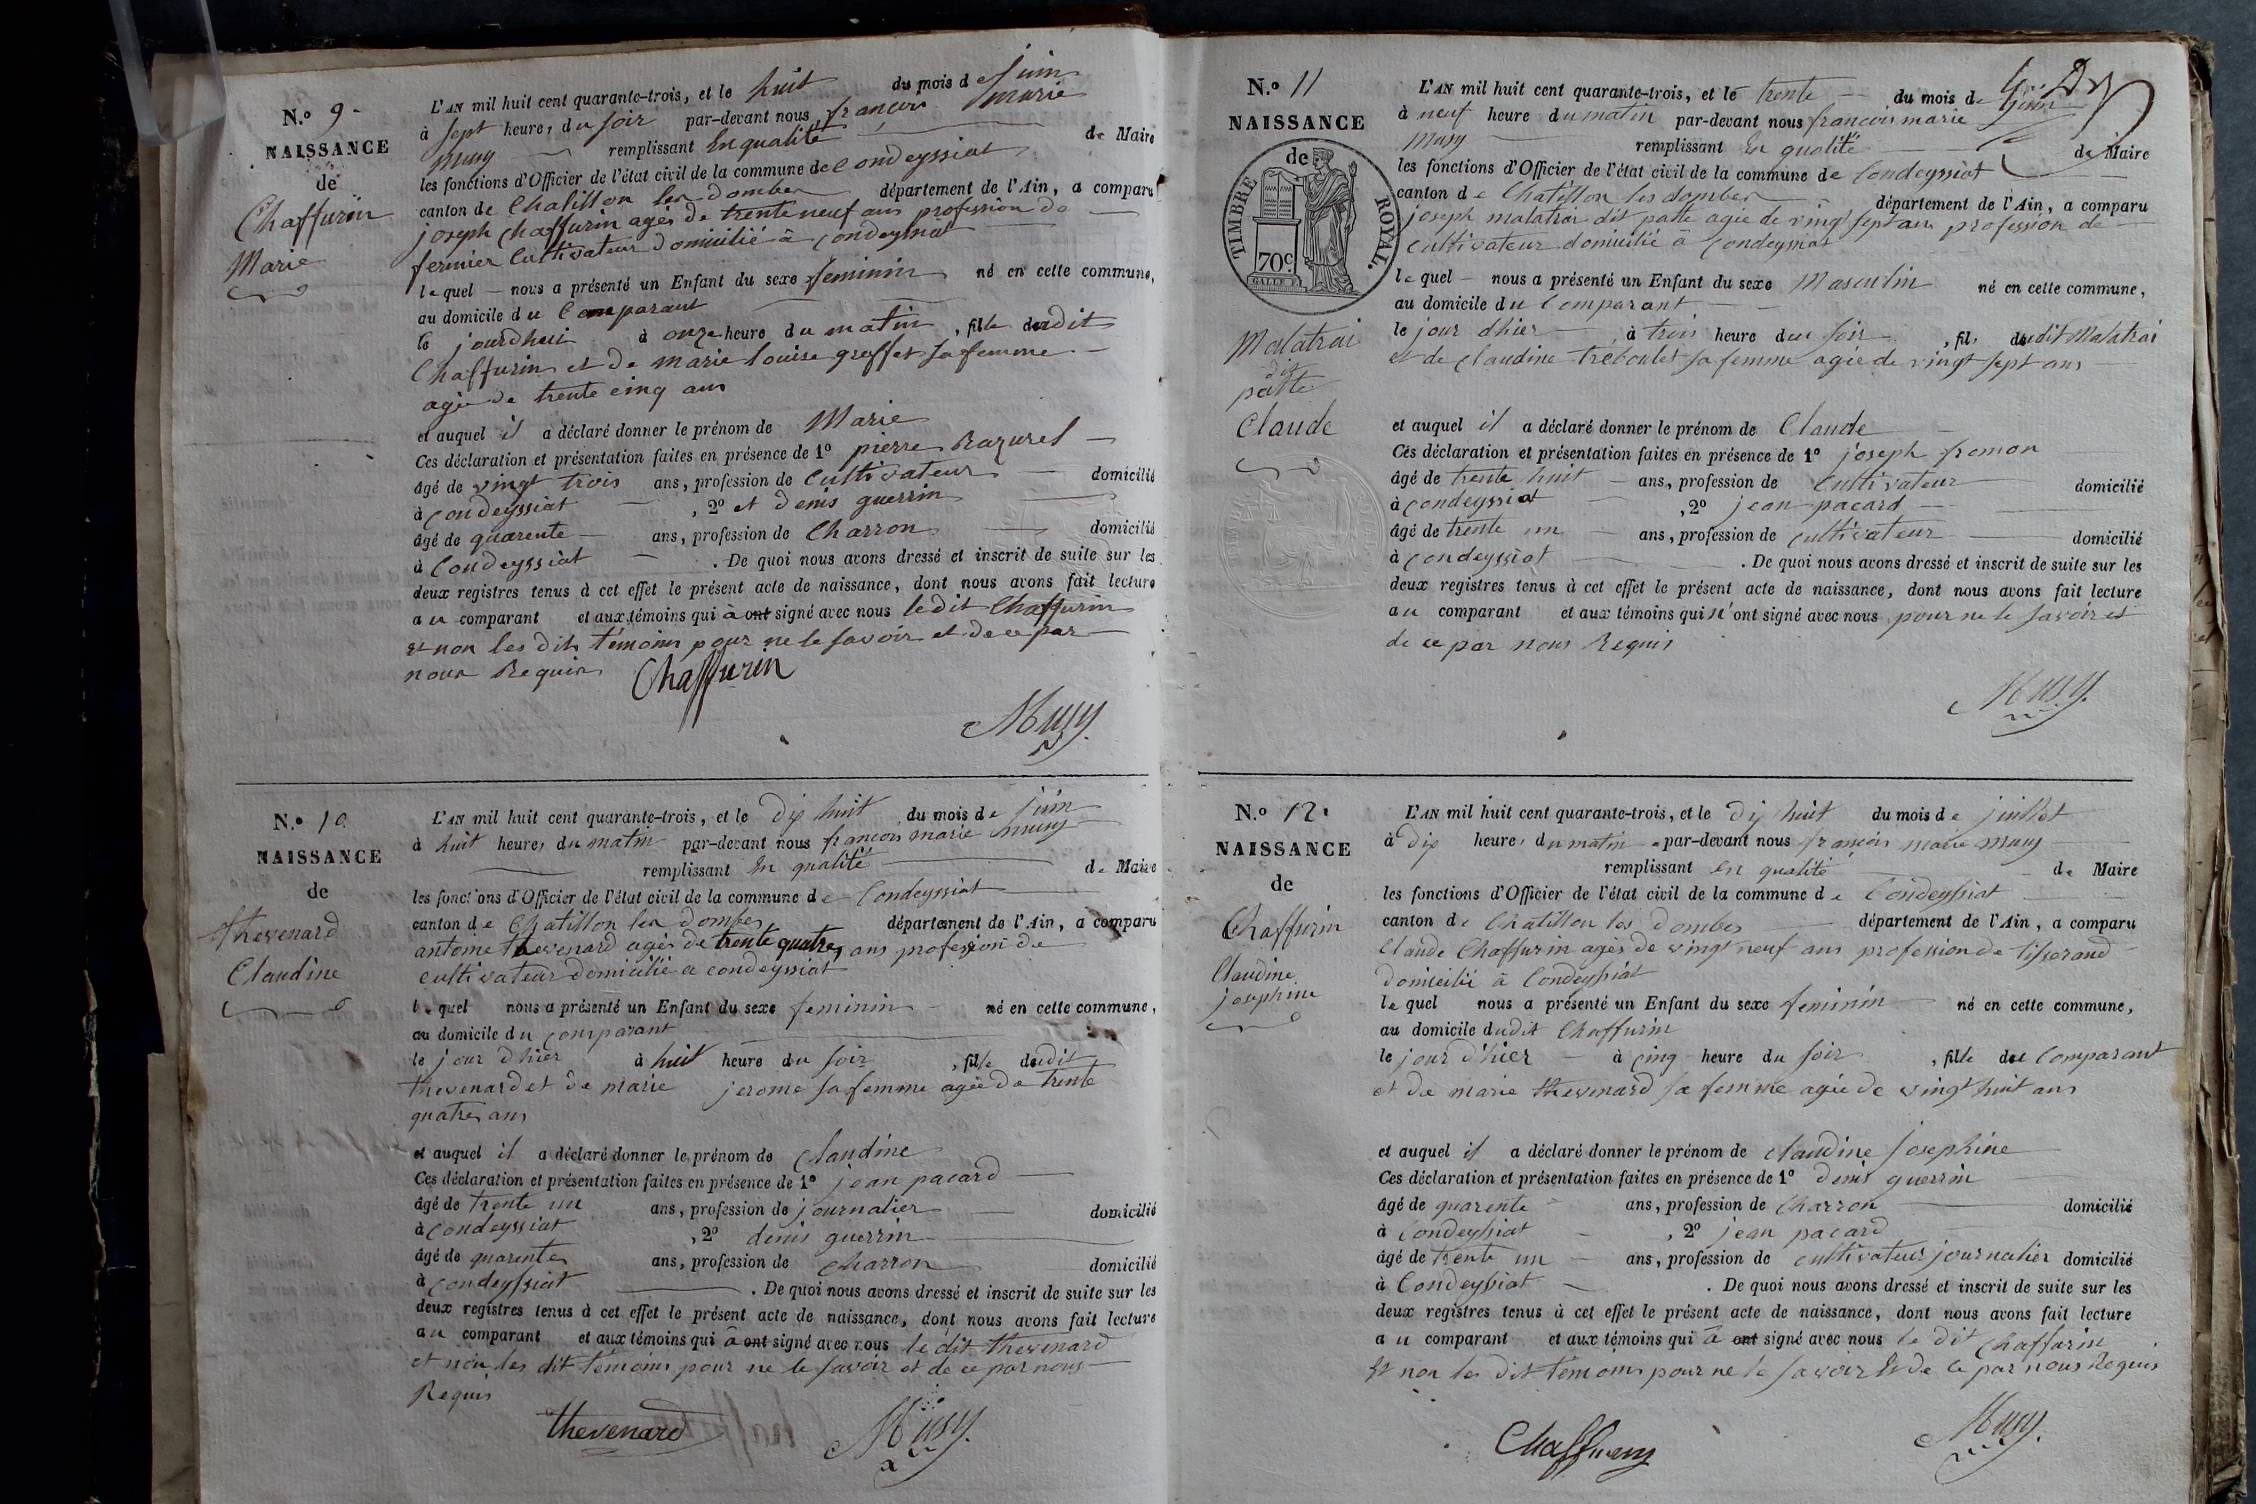 N.o 9
NAISSANCE
de
Chaffurin
Marie
L'AN mil huit cent quarante-trois, et le huit du mois de juin
à sept heures du soir par-devant nous françois marie
musy remplissant en qualité de Maire
les fonctions d'Officier de l'état civil de la commune de Condeyssiat
canton de Chatillon les dombes département de l'Ain, a comparu
joseph Chaffurin agés de trente neuf ans profession de
fermier Cultivateur domicilié à Condeyssiat
lequel nous a présenté un Enfant du sexe feminin né en cette commune,
au domicile du Comparant
le jourdhui à onze heure du matin, fille dudit
Chaffurin et de marie louise greffet sa femme
agée de trente cinq ans
et auquel il a déclaré donner le prénom de Marie
Ces déclaration et présentation faites en présence de 1o pierre Razurel
âgé de vingt trois ans, profession de Cultivateur domicilié
à Condeyssiat, 2o et denis guerrin
âgé de quarente ans, profession de Charron domicilié
à Condeyssiat. De quoi nous avons dressé et inscrit de suite sur les
deux registres tenus à cet effet le présent acte de naissance, dont nous avons fait lecture
au comparant et aux témoins qui à ont signé avec nous ledit Chaffurin
et non les dits témoins pour ne le savoir et de ce par
nous Requis
Chaffurin
Musy
N.o 10
NAISSANCE
de
thevenard
Claudine
L'AN mil huit cent quarante-trois, et le dix huit du mois de juin
à huit heures du matin par-devant nous francois marie musy
remplissant en qualité de Maire
les fonctions d'Officier de l'état civil de la commune de Condeyssiat
canton de Chatillon les dombes département de l'Ain, a comparu
antoine thevenard agés de trente quatre ans profession de
cultivateur domicilié a condeyssiat
lequel nous a présenté un Enfant du sexe feminin né en cette commune,
au domicile du comparant
le jour d'hier à huit heure du soir, fille dudit
thevenard et de marie jerome sa femme agée de trente
quatre ans
et auquel il a déclaré donner le prénom de Claudine
Ces déclaration et présentation faites en présence de 1o jean pacard
âgé de trente un ans, profession de journalier domicilié
à Condeyssiat, 2o denis guerrin
âgé de quarente ans, profession de charron domicilié
à Condeyssiat. De quoi nous avons dressé et inscrit de suite sur les
deux registres tenus à cet effet le présent acte de naissance, dont nous avons fait lecture
au comparant et aux témoins qui à ont signé avec nous le dit thevenard
et non les dit témoins pour ne le savoir et de ce par nous
Requis
thevenard
Musy
N.o 11
NAISSANCE
de
TIMBRE ROYAL.
70c.
Malatrai
dit
patte
Claude
L'AN mil huit cent quarante-trois, et le trente du mois de juin
à neuf heure du matin par-devant nous francois marie
Musy remplissant en qualité de Maire
les fonctions d'Officier de l'état civil de la commune de Condeyssiat
canton de Chatillon les dombes département de l'Ain, a comparu
joseph malatrai dit patte agée de vingt sept ans profession de
cultivateur domicilié à Condeyssiat
lequel nous a présenté un Enfant du sexe Masculin né en cette commune,
au domicile du Comparant
le jour dhier à trois heure du soir, fils dudit Malatrai
et de claudine treboulet sa femme agée de vingt sept ans
et auquel il a déclaré donner le prénom de Claude
Ces déclaration et présentation faites en présence de 1o joseph fromon
âgé de trente huit ans, profession de Cultivateur domicilié
à Condeyssiat, 2o jean pacard
âgé de trente un ans, profession de cultivateur domicilié
à Condeyssiat. De quoi nous avons dressé et inscrit de suite sur les
deux registres tenus à cet effet le présent acte de naissance, dont nous avons fait lecture
au comparant et aux témoins qui n'ont signé avec nous pour ne le savoir et
de ce par nous Requis
Musy
N.o 12
NAISSANCE
de
Chaffurin
Claudine
josephine
L'AN mil huit cent quarante-trois, et le dix huit du mois de juillet
à dix heures du matin par-devant nous françois marie musy
remplissant en qualité de Maire
les fonctions d'Officier de l'état civil de la commune de Condeyssiat
canton de Chatillon les dombes département de l'Ain, a comparu
Claude Chaffurin agés de vingt neuf ans profession de tisserand
domicilié à Condeyssiat
lequel nous a présenté un Enfant du sexe feminin né en cette commune,
au domicile dudit Chaffurin
le jour d'hier à cinq heure du soir, fille du Comparant
et de marie thevenard sa femme agée de vingt huit ans
et auquel il a déclaré donner le prénom de claudine josephine
Ces déclaration et présentation faites en présence de 1o denis guerrin
âgé de quarente ans, profession de Charron domicilié
à Condeyssiat, 2o jean pacard
âgé de trente un ans, profession de cultivateur journalier domicilié
à Condeyssiat. De quoi nous avons dressé et inscrit de suite sur les
deux registres tenus à cet effet le présent acte de naissance, dont nous avons fait lecture
au comparant et aux témoins qui à ont signé avec nous le dit Chaffurin
Et non les dit témoins pour ne le savoir Et de ce par nous Requis
Chaffurin
Musy